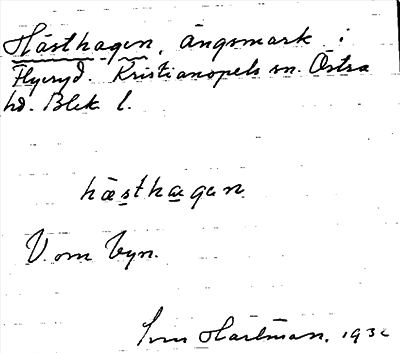 Hästhagen, ängsmark i
Flyeryd. Kristianopels sn. Östra
hd. Blek l.
hästhagen
V. om byn.
Hartman, 193